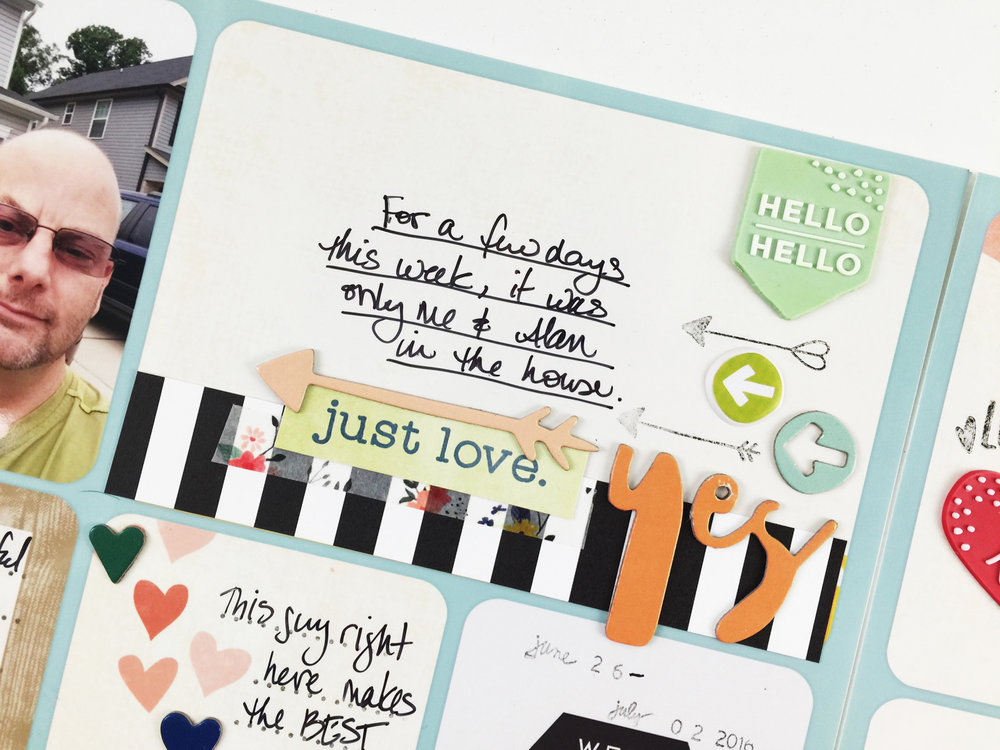 HELLO
HELLO
For a few days
this week, it was
only me & Alan
in the house.
just love.
yes
This guy right
here makes
the BEST
june 26-
july 02 2016
WE